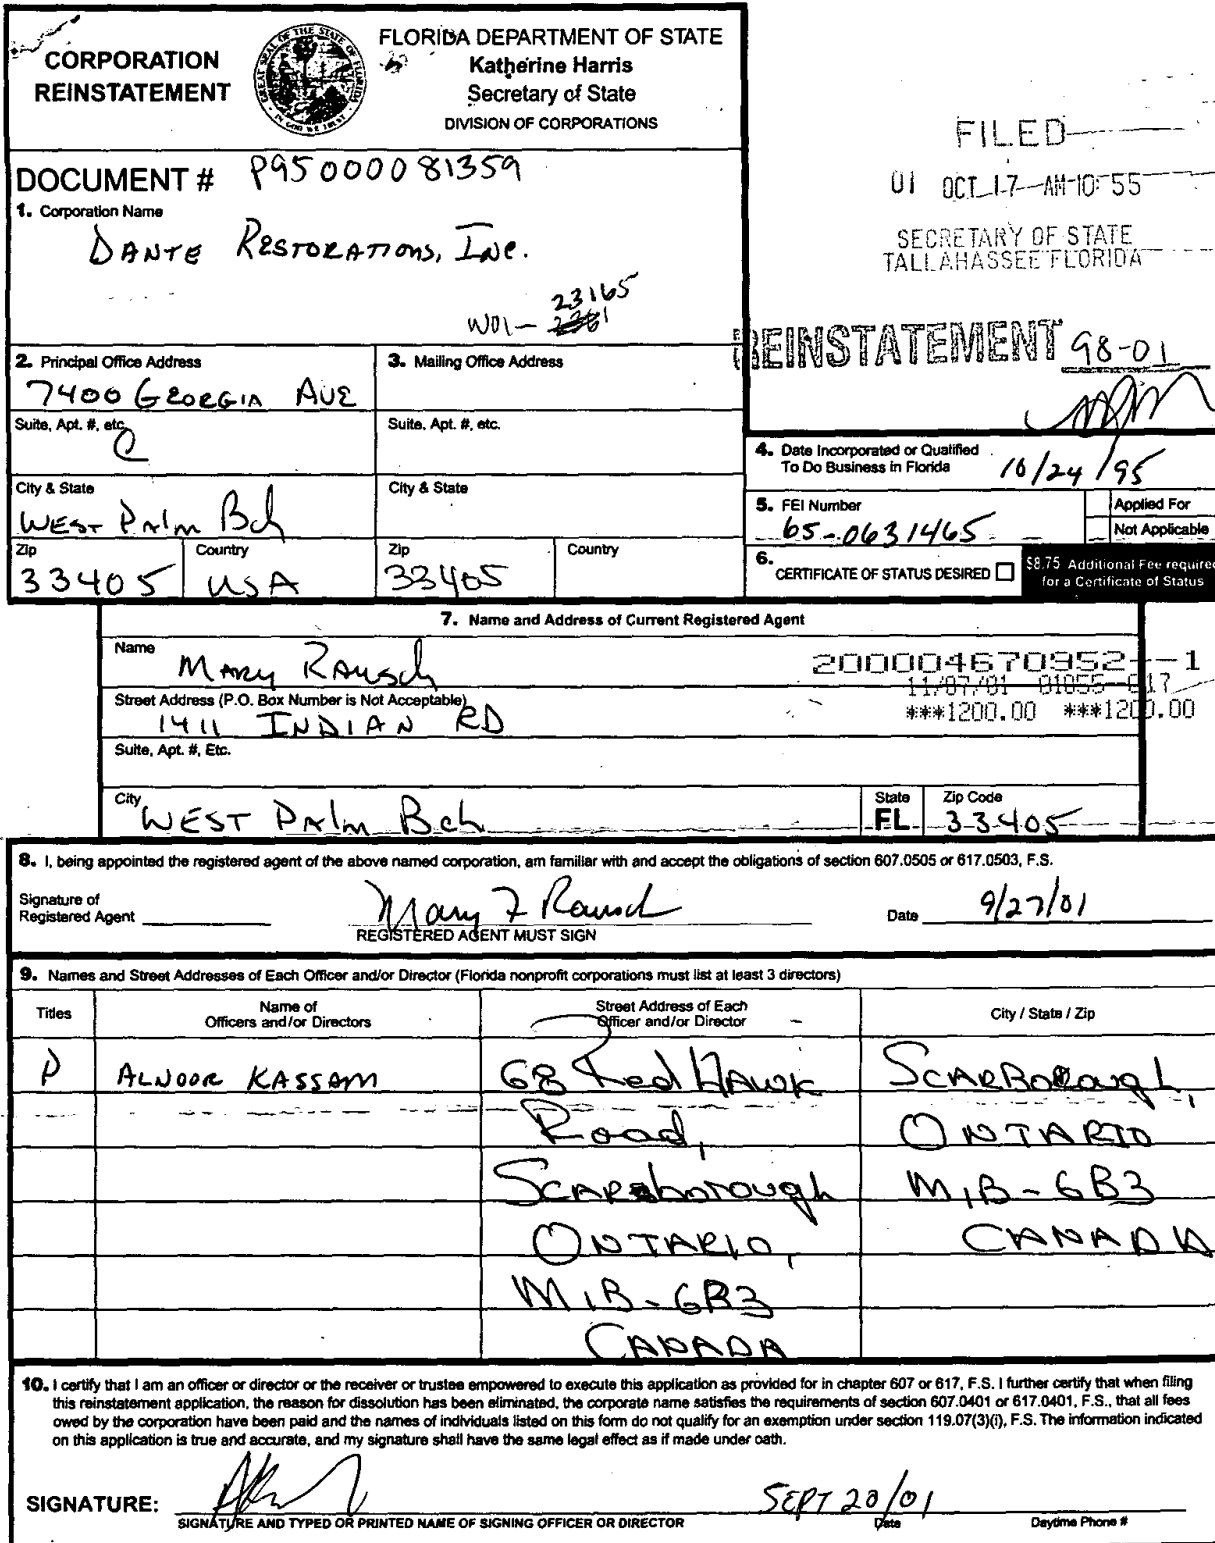 CORPORATION
REINSTATEMENT
FLORIDA DEPARTMENT OF STATE
Katherine Harris
Secretary of State
DIVISION OF CORPORATIONS
FILED
01 OCT 17 AM 10:55
SECRETARY OF STATE
TALLAHASSEE FLORIDA
DOCUMENT # P95000081359
1. Corporation Name
DANTE RESTORATIONS, INC.
23165
W01-
REINSTATEMENT 98-01
2. Principal Office Address
7400 GEORGIA AVE
Suite, Apt. #, etc.
C
City & State
WEST PALM Bch
Zip
33405
Country
USA
3. Mailing Office Address
Suite, Apt. #, etc.
City & State
Zip
33405
Country
4. Date Incorporated or Qualified
To Do Business in Florida 10/24/95
5. FEI Number
65-0631465
Applied For
Not Applicable
6. CERTIFICATE OF STATUS DESIRED
$8.75 Additional Fee required
for a Certificate of Status
7. Name and Address of Current Registered Agent
Name
MARY RAUSCH
200004670952--1
11/07/01 01055-017
***1200.00 ***1200.00
Street Address (P.O. Box Number is Not Acceptable)
1411 INDIAN RD
Suite, Apt. #, Etc.
City
WEST PALM Bch
State
FL
Zip Code
33405
8. I, being appointed the registered agent of the above named corporation, am familiar with and accept the obligations of section 607.0505 or 617.0503, F.S.
Signature of
Registered Agent Mary F Rausch Date 9/27/01
REGISTERED AGENT MUST SIGN
9. Names and Street Addresses of Each Officer and/or Director (Florida nonprofit corporations must list at least 3 directors)
Titles
Name of
Officers and/or Directors
Street Address of Each
Officer and/or Director
City / State / Zip
P ALNOOR KASSAM 68 Red HAWK SCARBOROUGH,
Road, ONTARIO
SCARBOROUGH M1B-6B3
ONTARIO, CANADA
M1B-6B3
CANADA
10. I certify that I am an officer or director or the receiver or trustee empowered to execute this application as provided for in chapter 607 or 617, F.S. I further certify that when filing
this reinstatement application, the reason for dissolution has been eliminated, the corporate name satisfies the requirements of section 607.0401 or 617.0401, F.S., that all fees
owed by the corporation have been paid and the names of individuals listed on this form do not qualify for an exemption under section 119.07(3)(i), F.S. The information indicated
on this application is true and accurate, and my signature shall have the same legal effect as if made under oath.
SIGNATURE: SEPT 20/01
SIGNATURE AND TYPED OR PRINTED NAME OF SIGNING OFFICER OR DIRECTOR
Date
Daytime Phone #